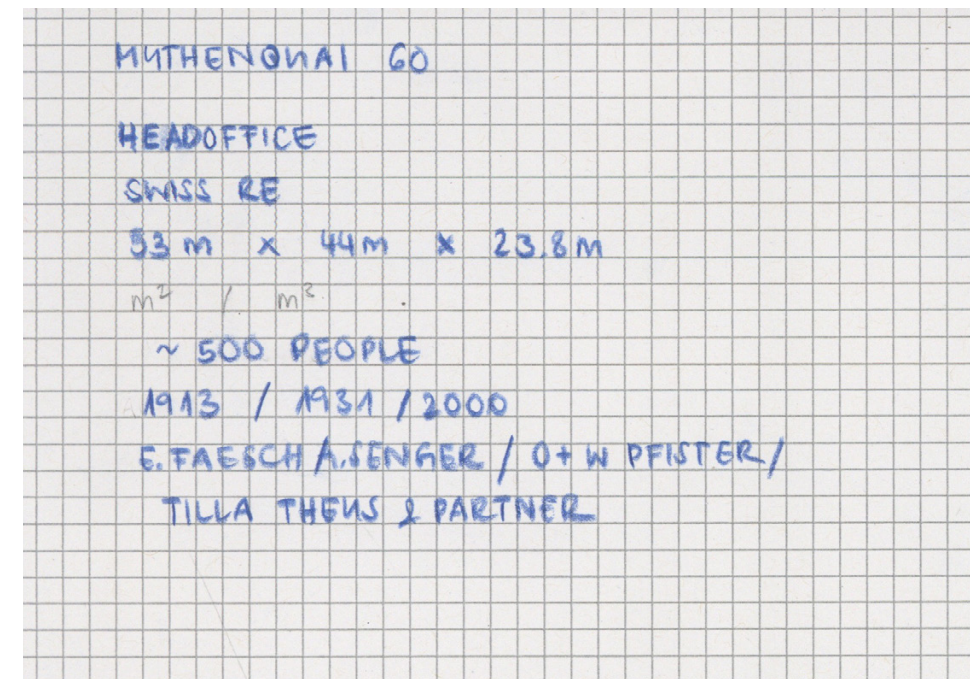 MYTHENQUAI 60
HEADOFFICE
SWISS RE
53 m x 44 m x 23.8 m
m² / m³
~ 500 PEOPLE
1913 / 1931 / 2000
E. FAESCH / A. SENGER / O + W PFISTER /
TILLA THEUS & PARTNER